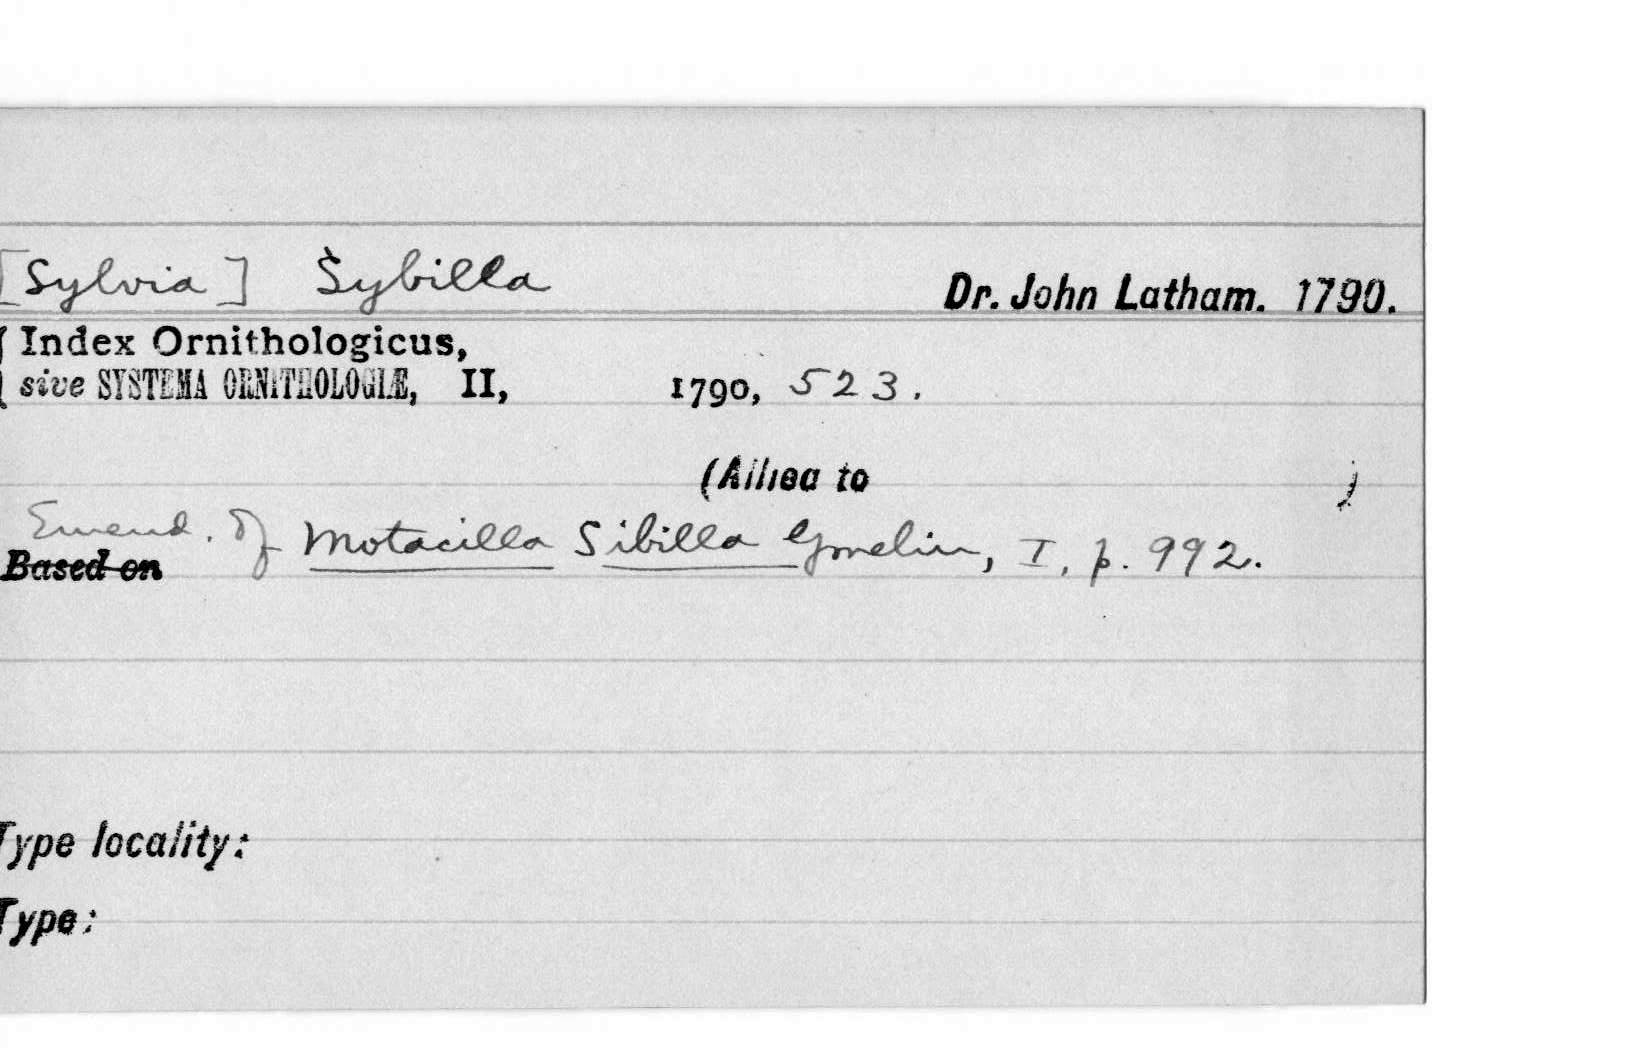 [Sylvia] Sybilla Dr. John Latham. 1790.
Index Ornithologicus,
sive SYSTEMA ORNITHOLOGIÆ, II, 1790, 523.
(Allied to )
Emend. of Motacilla Sibilla Gmelin, I, p. 992.
Based on
Type locality:
Type: